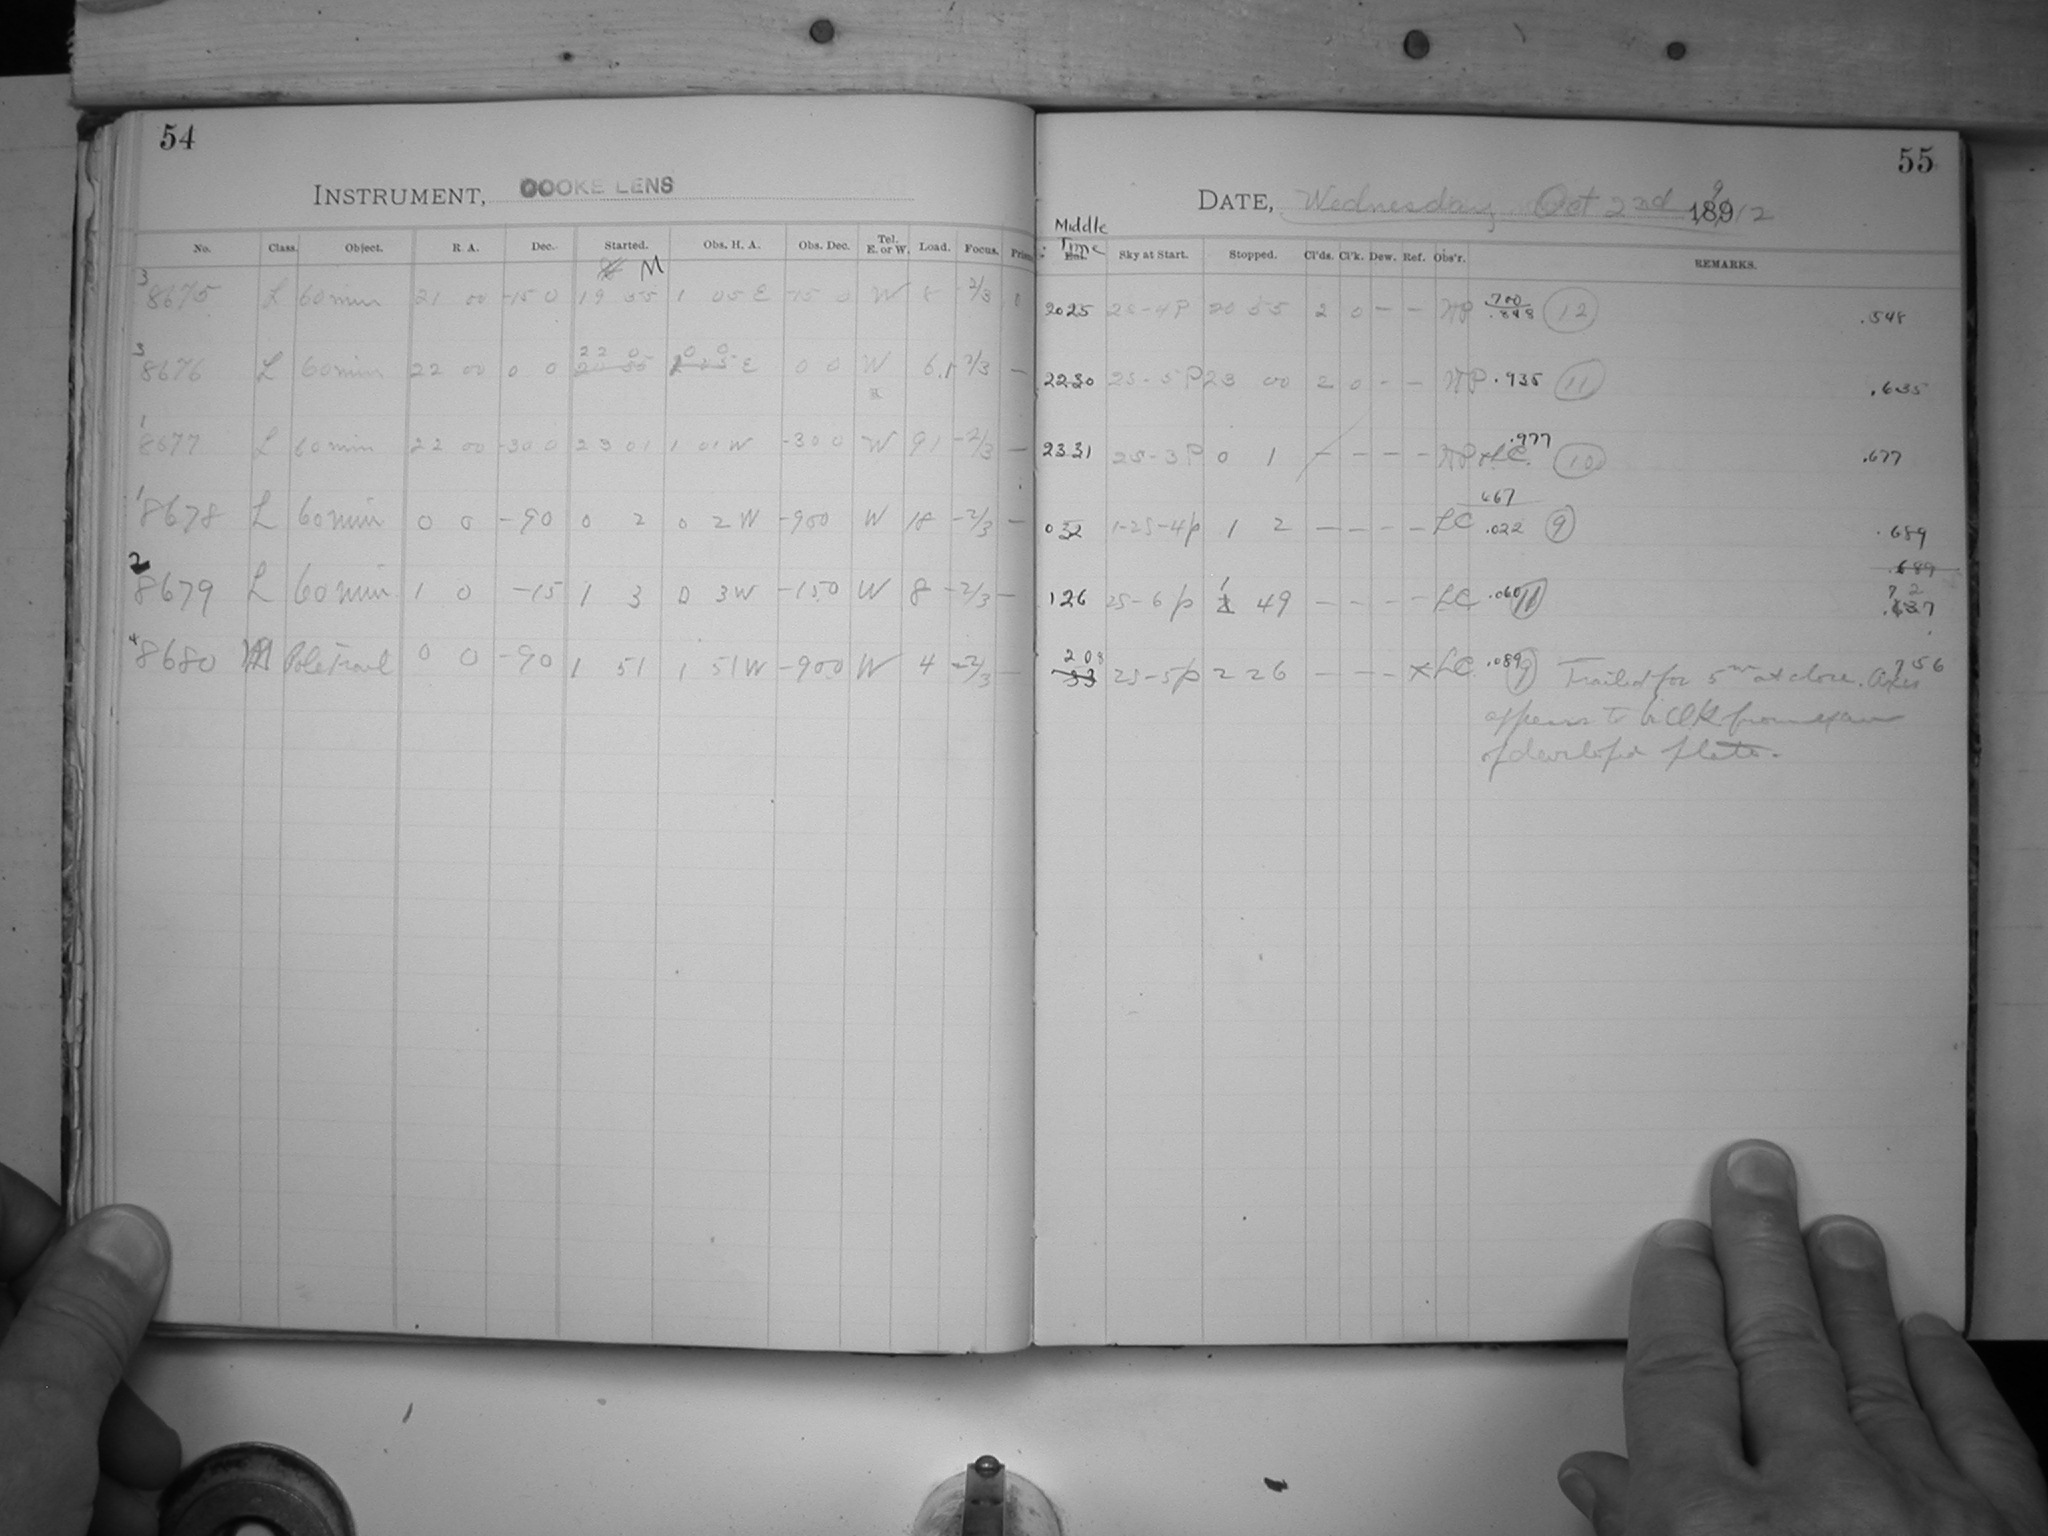 54
INSTRUMENT, COOKE LENS
No. Class. Object. R. A. Dec. Started. Obs. H. A. Obs. Dec. Tel. E. or W. Load. Focus.
M
3 8675 L 60 min 21 00 -15 0 19 55 1 05 E -15 0 W 8 -2/3
22 0 0 0
3 8676 L 60 min 22 00 0 0 20 55 1 05 E 0 0 W 6.1 -2/3 —
1 8677 L 60 min 22 00 -30 0 23 01 1 01 W -30 0 W 91 -2/3 —
1 8678 L 60 min 0 0 -90 0 2 0 2 W -900 W 18 -2/3 —
2 8679 L 60 min 1 0 -15 1 3 0 3 W -150 W 8 -2/3 —
4 8680 Pole Trail 0 0 -90 1 51 1 51 W -900 W 4 -2/3 —
55
DATE, Wednesday Oct 2nd 1899 12
Middle
Time
Sky at Start. Stopped. Cl'ds. Cl'k. Dew. Ref. Obs'r. REMARKS.
2025 25-4P 20 55 2 0 — — WP .700 .848 12 .548
2230 25-5P 23 00 2 0 - - WP .935 11 .635
2331 25-3P 0 1 — — — — WP + LC .977 10 .677
667
032 1-25-4p 1 2 — — — — LC .022 9 .689
.689
7 2
126 25-6p 1 49 — — — — LC .060 11 .637
208
33 25-5p 2 26 — — — x LC .089 9 Trailed for 5m at close. Axis 756
appears to be OK from exam
of developed plate.